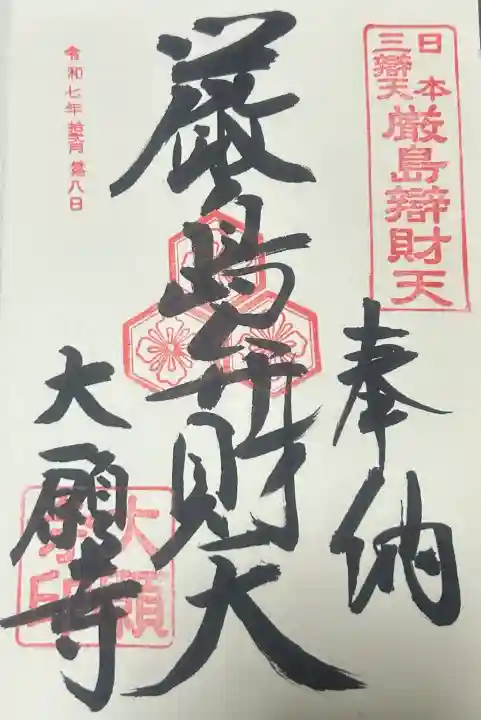 日本
三辯天
厳島辯財天
奉納
厳島弁財天
令和七年拾弐月第八日
大願寺
大願
寺印